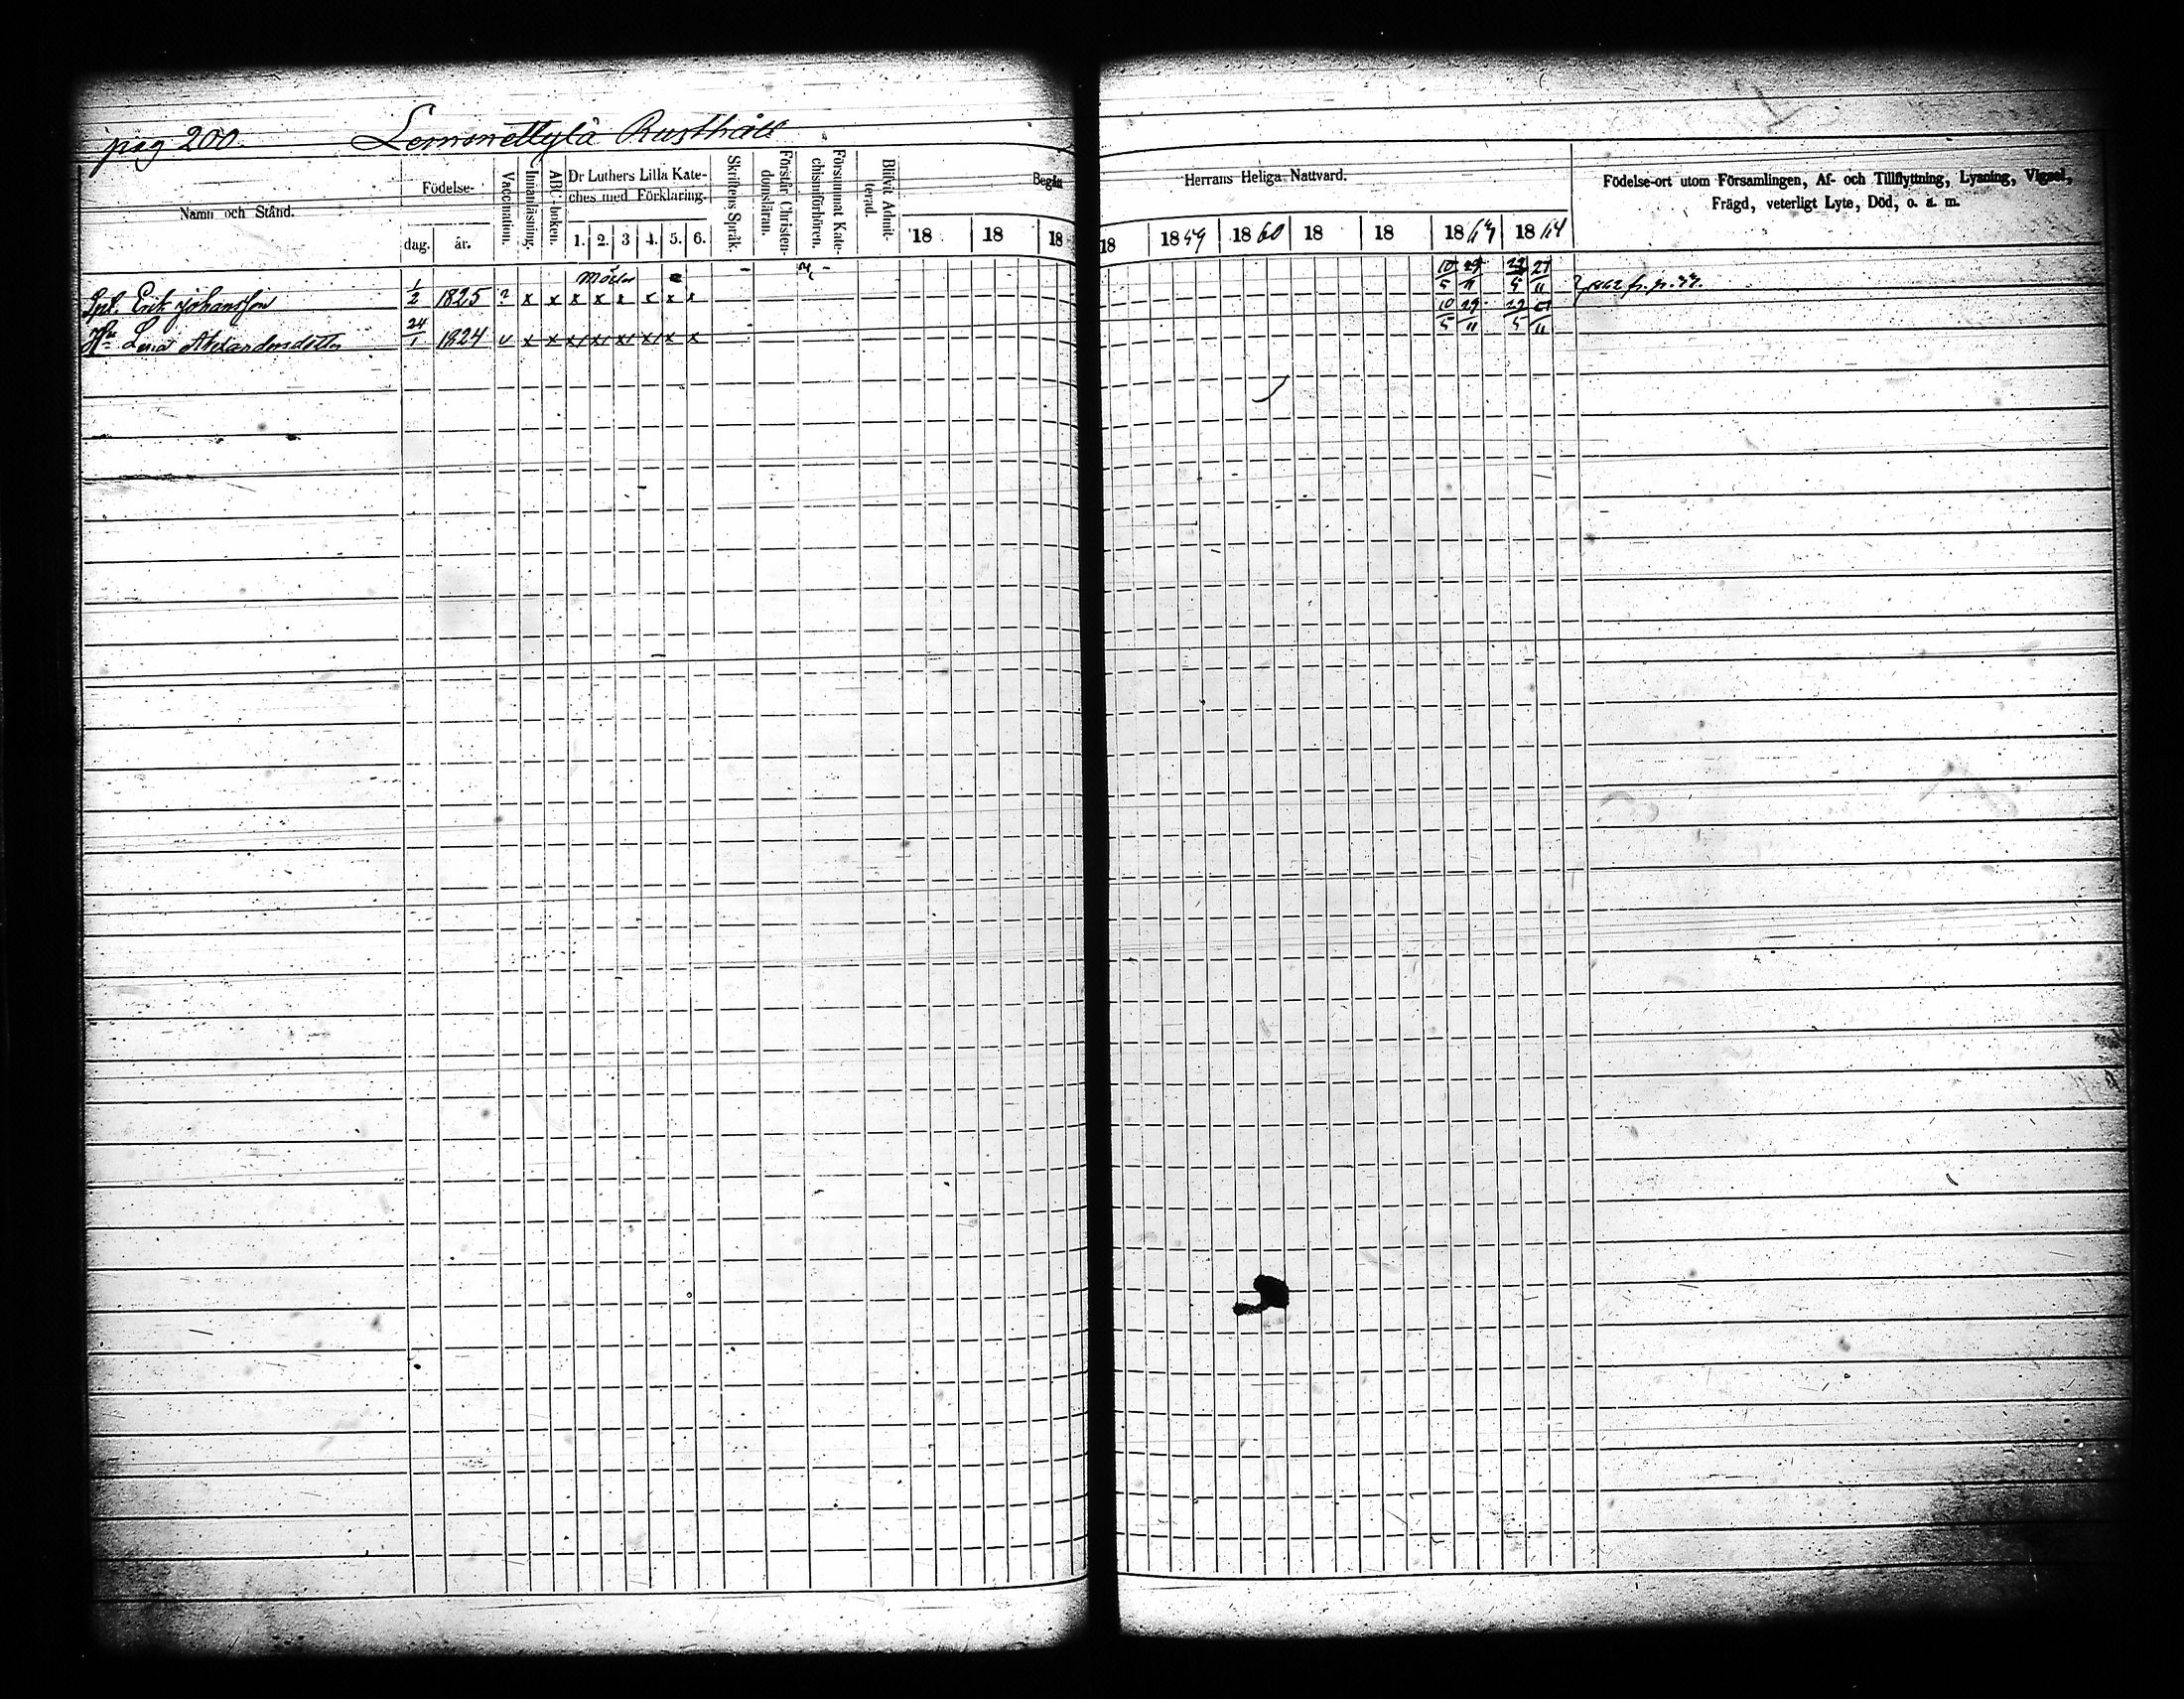 pag 200. Lemmettylä Rusthåll
Namn och Stånd.
Födelse-
dag. år.
Vaccination.
Innanläsning.
ABC-boken.
Dr Luthers Lilla Kate-
ches med Förklaring.
1. 2. 3 4. 5. 6.
Skriftens Språk.
Förstår Christen-
domsläran.
Försummat Kate-
chismiförhören.
Blifvit Admit-
terad.
Begått
18 18 18
Herrans Heliga Nattvard.
18 1859 1860 18 18 1863 1864
Födelse-ort utom Församlingen, Af- och Tillflyttning, Lysning, Vigsel,
Frägd, veterligt Lyte, Död, o. a. m.
Spt. Erik Johansson 1/2 1825 ? x x x x x x x x 10/5 29/11 22/5 27/11 1862 fr. p.
Hu Lena Alexandersdotter 24/1 1824 v x x x x x x x x 10/5 29/11 22/5 27/11